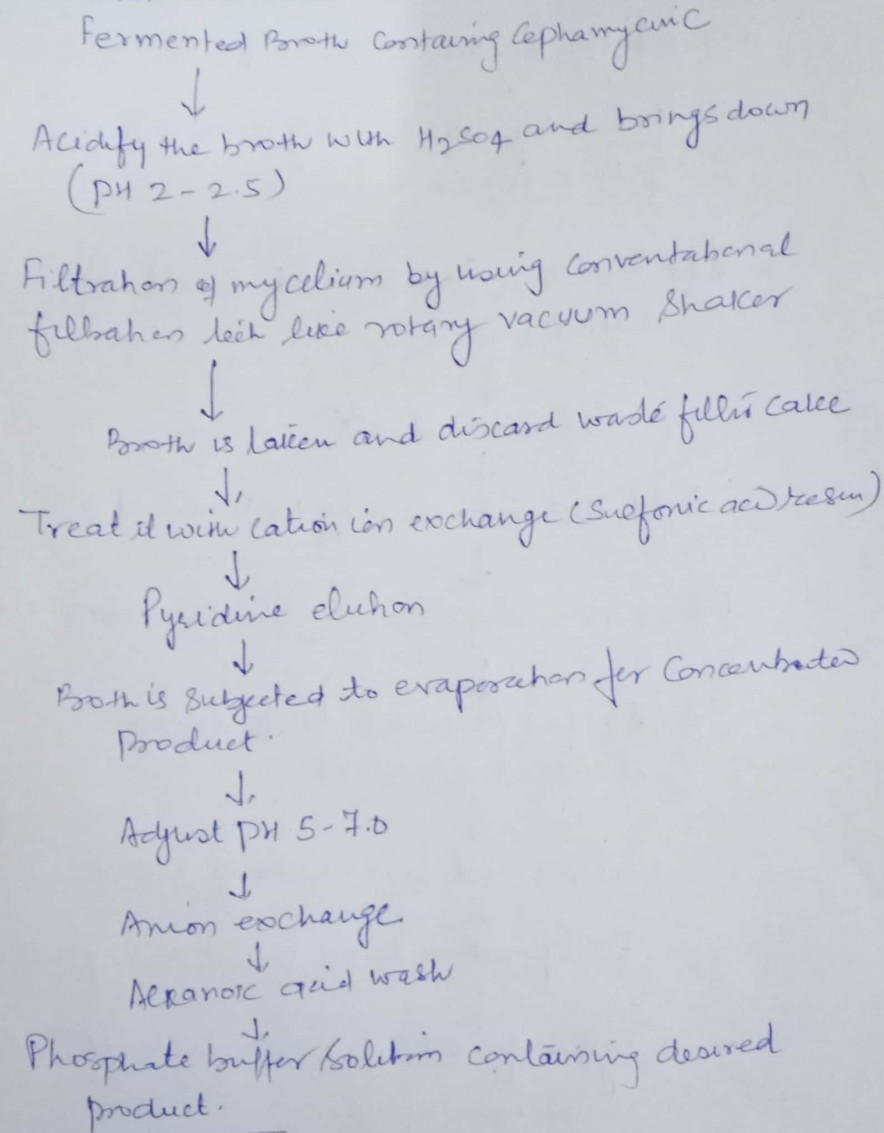 Fermented Broth Containing Cephamycin C
↓
Acidify the broth with H2SO4 and brings down
(PH 2-2.5)
↓
Filtration of mycelium by using Conventational
filtration tech like rotary vacuum Shaker
↓
Broth is taken and discard waste filter cake
↓
Treat it with cation ion exchange (Sulfonic acid resin)
↓
Pyridine elution
↓
Broth is Subjected to evaporation for Concentrated
Product.
↓
Adjust PH 5-7.0
↓
Anion exchange
↓
Alkanoic acid wash
↓
Phosphate buffer/solution containing desired
product.